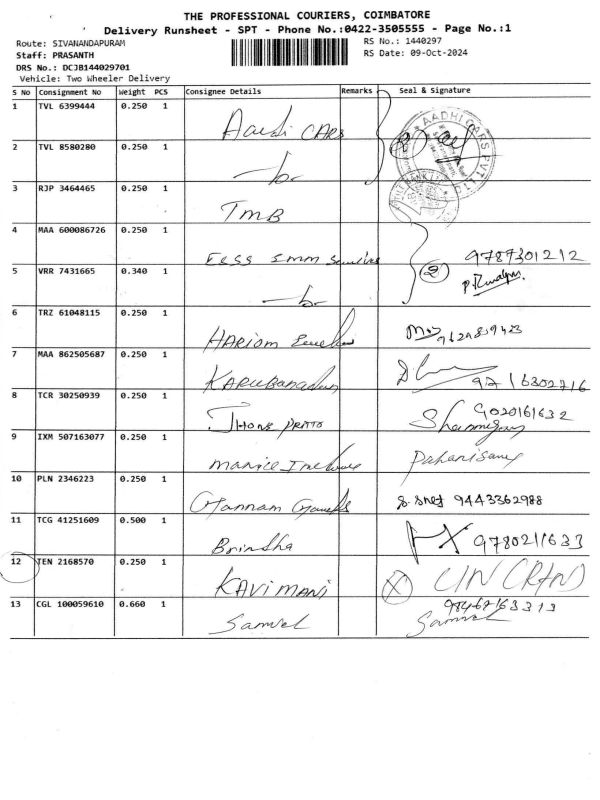 THE PROFESSIONAL COURIERS, COIMBATORE
Delivery Runsheet - SPT - Phone No.:0422-3505555 - Page No.:1
Route: SIVANANDAPURAM
RS No.: 1440297
Staff: PRASANTH
RS Date: 09-Oct-2024
DRS No.: DCJB144029701
Vehicle: Two Wheeler Delivery
S No Consignment No Weight PCS Consignee Details Remarks Seal & Signature
1 TVL 6399444 0.250 1
CARS
AADHI CARS PVT LTD
2 TVL 8580280 0.250 1
3 RJP 3464465 0.250 1
TMB
4 MAA 600086726 0.250 1
9787301212
5 VRR 7431665 0.340 1
2
6 TRZ 61048115 0.250 1
HARIOM
7 MAA 862505687 0.250 1
8 TCR 30250939 0.250 1
9020161632
9 IXM 507163077 0.250 1
10 PLN 2346223 0.250 1
9443362988
11 TCG 41251609 0.500 1
Brindha 9780211633
12 TEN 2168570 0.250 1
KAVIMANI
13 CGL 100059610 0.660 1
Samuel Samuel